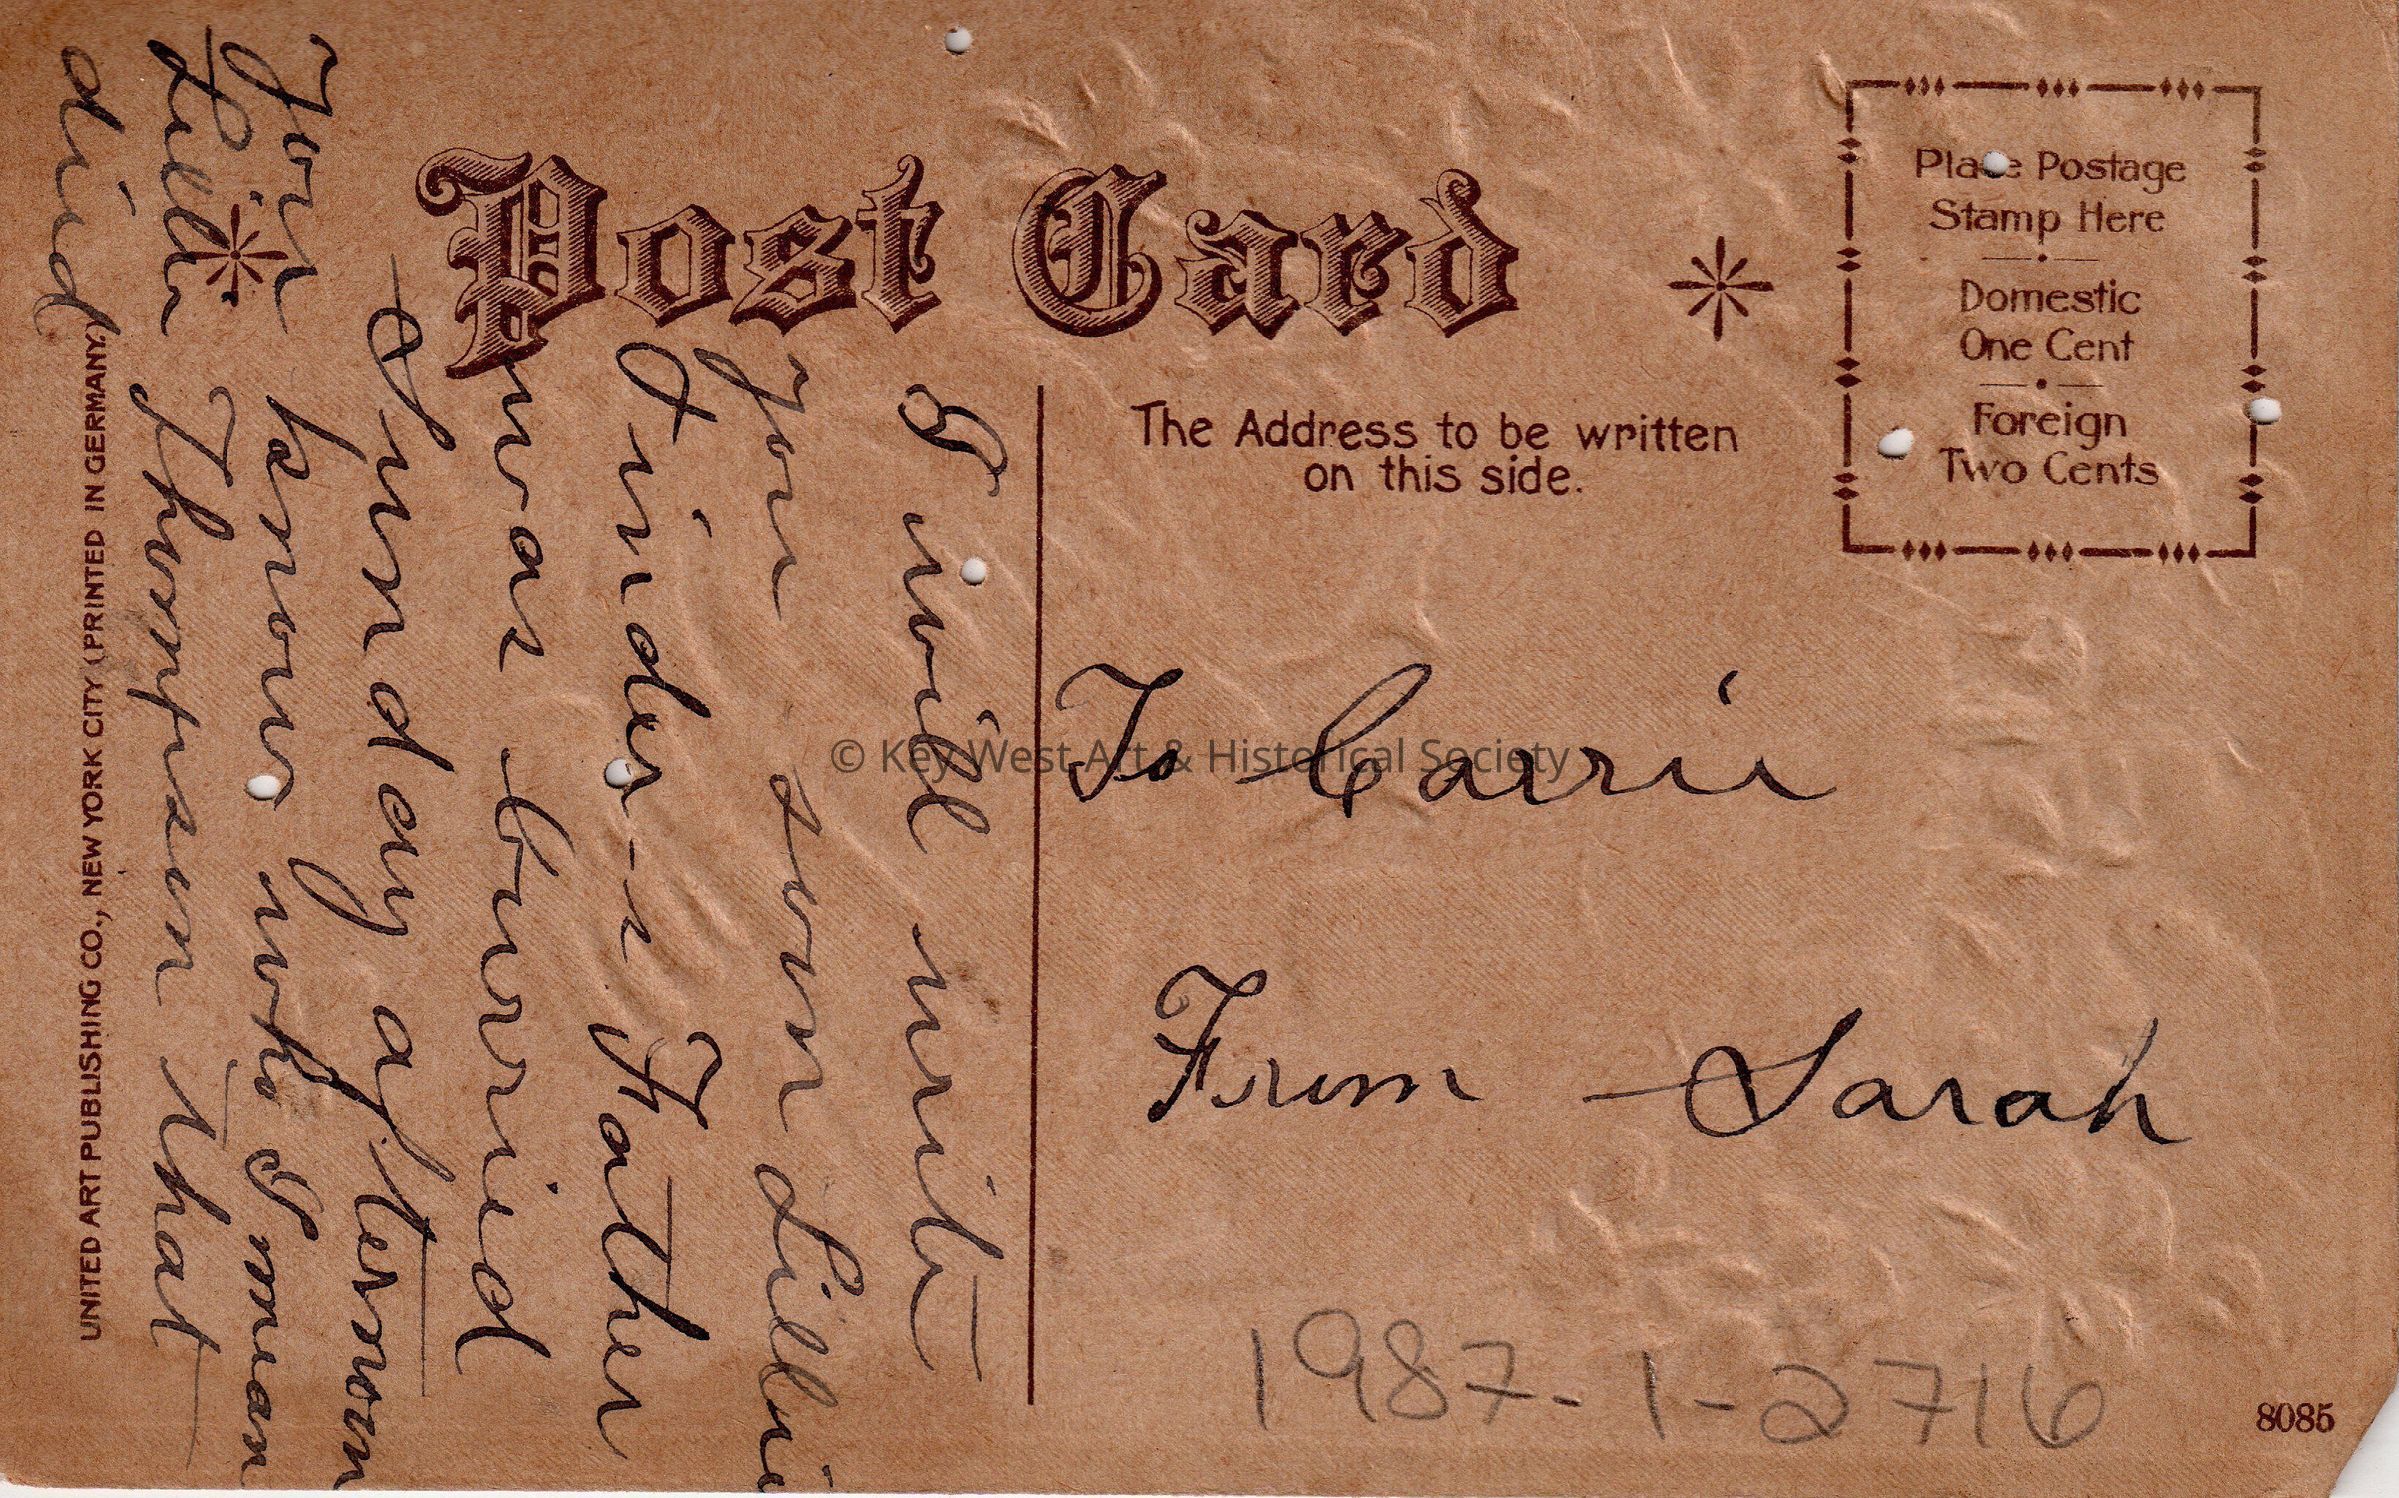 Post Card
Place Postage
Stamp Here
Domestic
One Cent
Foreign
Two Cents
The Address to be written
on this side.
I will write
you soon Lillie
Pinder-s Father
was burried
Sunday afternoon
You know who I mean
Thompson that
died
To Carrie
From Sarah
UNITED ART PUBLISHING CO., NEW YORK CITY (PRINTED IN GERMANY)
1987-1-2716
8085
© Key West Art & Historical Society